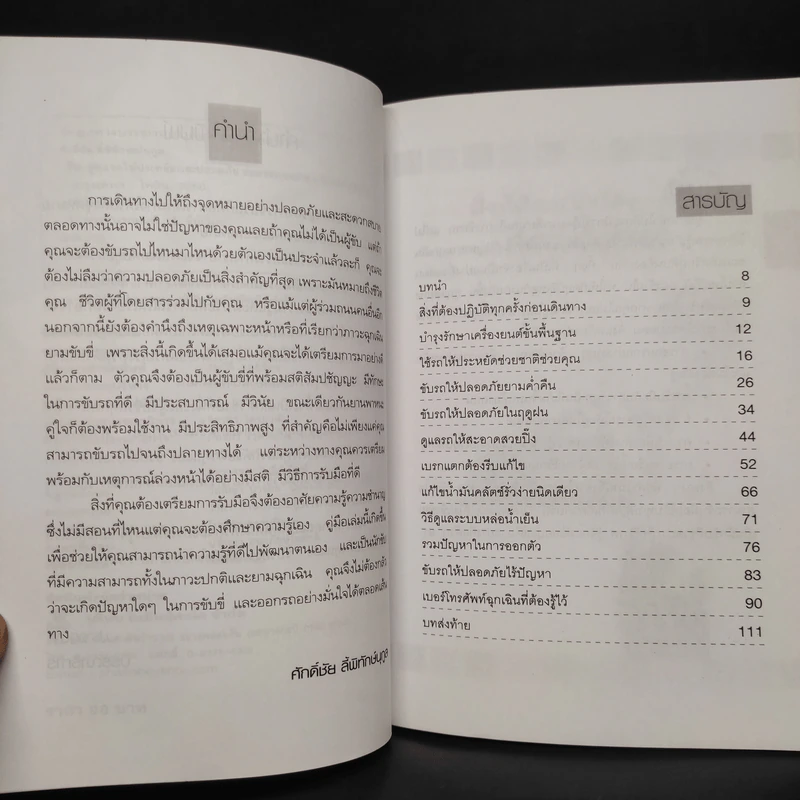 คำนำ
การเดินทางไปให้ถึงจุดหมายอย่างปลอดภัยและสะดวกสบาย
ตลอดทางนั้นอาจไม่ใช่ปัญหาของคุณเลยถ้าคุณไม่ได้เป็นผู้ขับ แต่ถ้า
คุณจะต้องขับรถไปไหนมาไหนด้วยตัวเองเป็นประจำแล้วละก็ คุณจะ
ต้องไม่ลืมว่าความปลอดภัยเป็นสิ่งสำคัญที่สุด เพราะมันหมายถึงชีวิต
คุณ ชีวิตผู้ที่โดยสารร่วมไปกับคุณ หรือแม้แต่ผู้ร่วมถนนคนอื่นอีก
นอกจากนี้ยังต้องคำนึงถึงเหตุเฉพาะหน้าหรือที่เรียกว่าภาวะฉุกเฉิน
ยามขับขี่ เพราะสิ่งนี้เกิดขึ้นได้เสมอแม้คุณจะได้เตรียมการมาอย่างดี
แล้วก็ตาม ตัวคุณจึงต้องเป็นผู้ขับขี่ที่พร้อมสติสัมปชัญญะ มีทักษะ
ในการขับรถที่ดี มีประสบการณ์ มีวินัย ขณะเดียวกันยานพาหนะ
คู่ใจก็ต้องพร้อมใช้งาน มีประสิทธิภาพสูง ที่สำคัญคือไม่เพียงแค่คุณ
สามารถขับรถไปจนถึงปลายทางได้ แต่ระหว่างทางคุณควรเตรียม
พร้อมกับเหตุการณ์ล่วงหน้าได้อย่างมีสติ มีวิธีการรับมือที่ดี
สิ่งที่คุณต้องเตรียมการรับมือจึงต้องอาศัยความรู้ความชำนาญ
ซึ่งไม่มีสอนที่ไหนแต่คุณจะต้องศึกษาความรู้เอง คู่มือเล่มนี้เกิดขึ้น
เพื่อช่วยให้คุณสามารถนำความรู้ที่ดีไปพัฒนาตนเอง และเป็นนักขับ
ที่มีความสามารถทั้งในภาวะปกติและยามฉุกเฉิน คุณจึงไม่ต้องกลัว
ว่าจะเกิดปัญหาใดๆ ในการขับขี่ และออกรถอย่างมั่นใจได้ตลอดเส้น
ทาง
ศักดิ์ชัย ลี้พิทักษ์นุกูล
สารบัญ
บทนำ 8
สิ่งที่ต้องปฏิบัติทุกครั้งก่อนเดินทาง 9
บำรุงรักษาเครื่องยนต์ขั้นพื้นฐาน 12
ใช้รถให้ประหยัดช่วยชาติช่วยคุณ 16
ขับรถให้ปลอดภัยยามค่ำคืน 26
ขับรถให้ปลอดภัยในฤดูฝน 34
ดูแลรถให้สะอาดสวยปิ๊ง 44
เบรกแตกต้องรีบแก้ไข 52
แก้ไขน้ำมันคลัตช์รั่วง่ายนิดเดียว 66
วิธีดูแลระบบหล่อน้ำเย็น 71
รวมปัญหาในการออกตัว 76
ขับรถให้ปลอดภัยไร้ปัญหา 83
เบอร์โทรศัพท์ฉุกเฉินที่ต้องรู้ไว้ 90
บทส่งท้าย 111